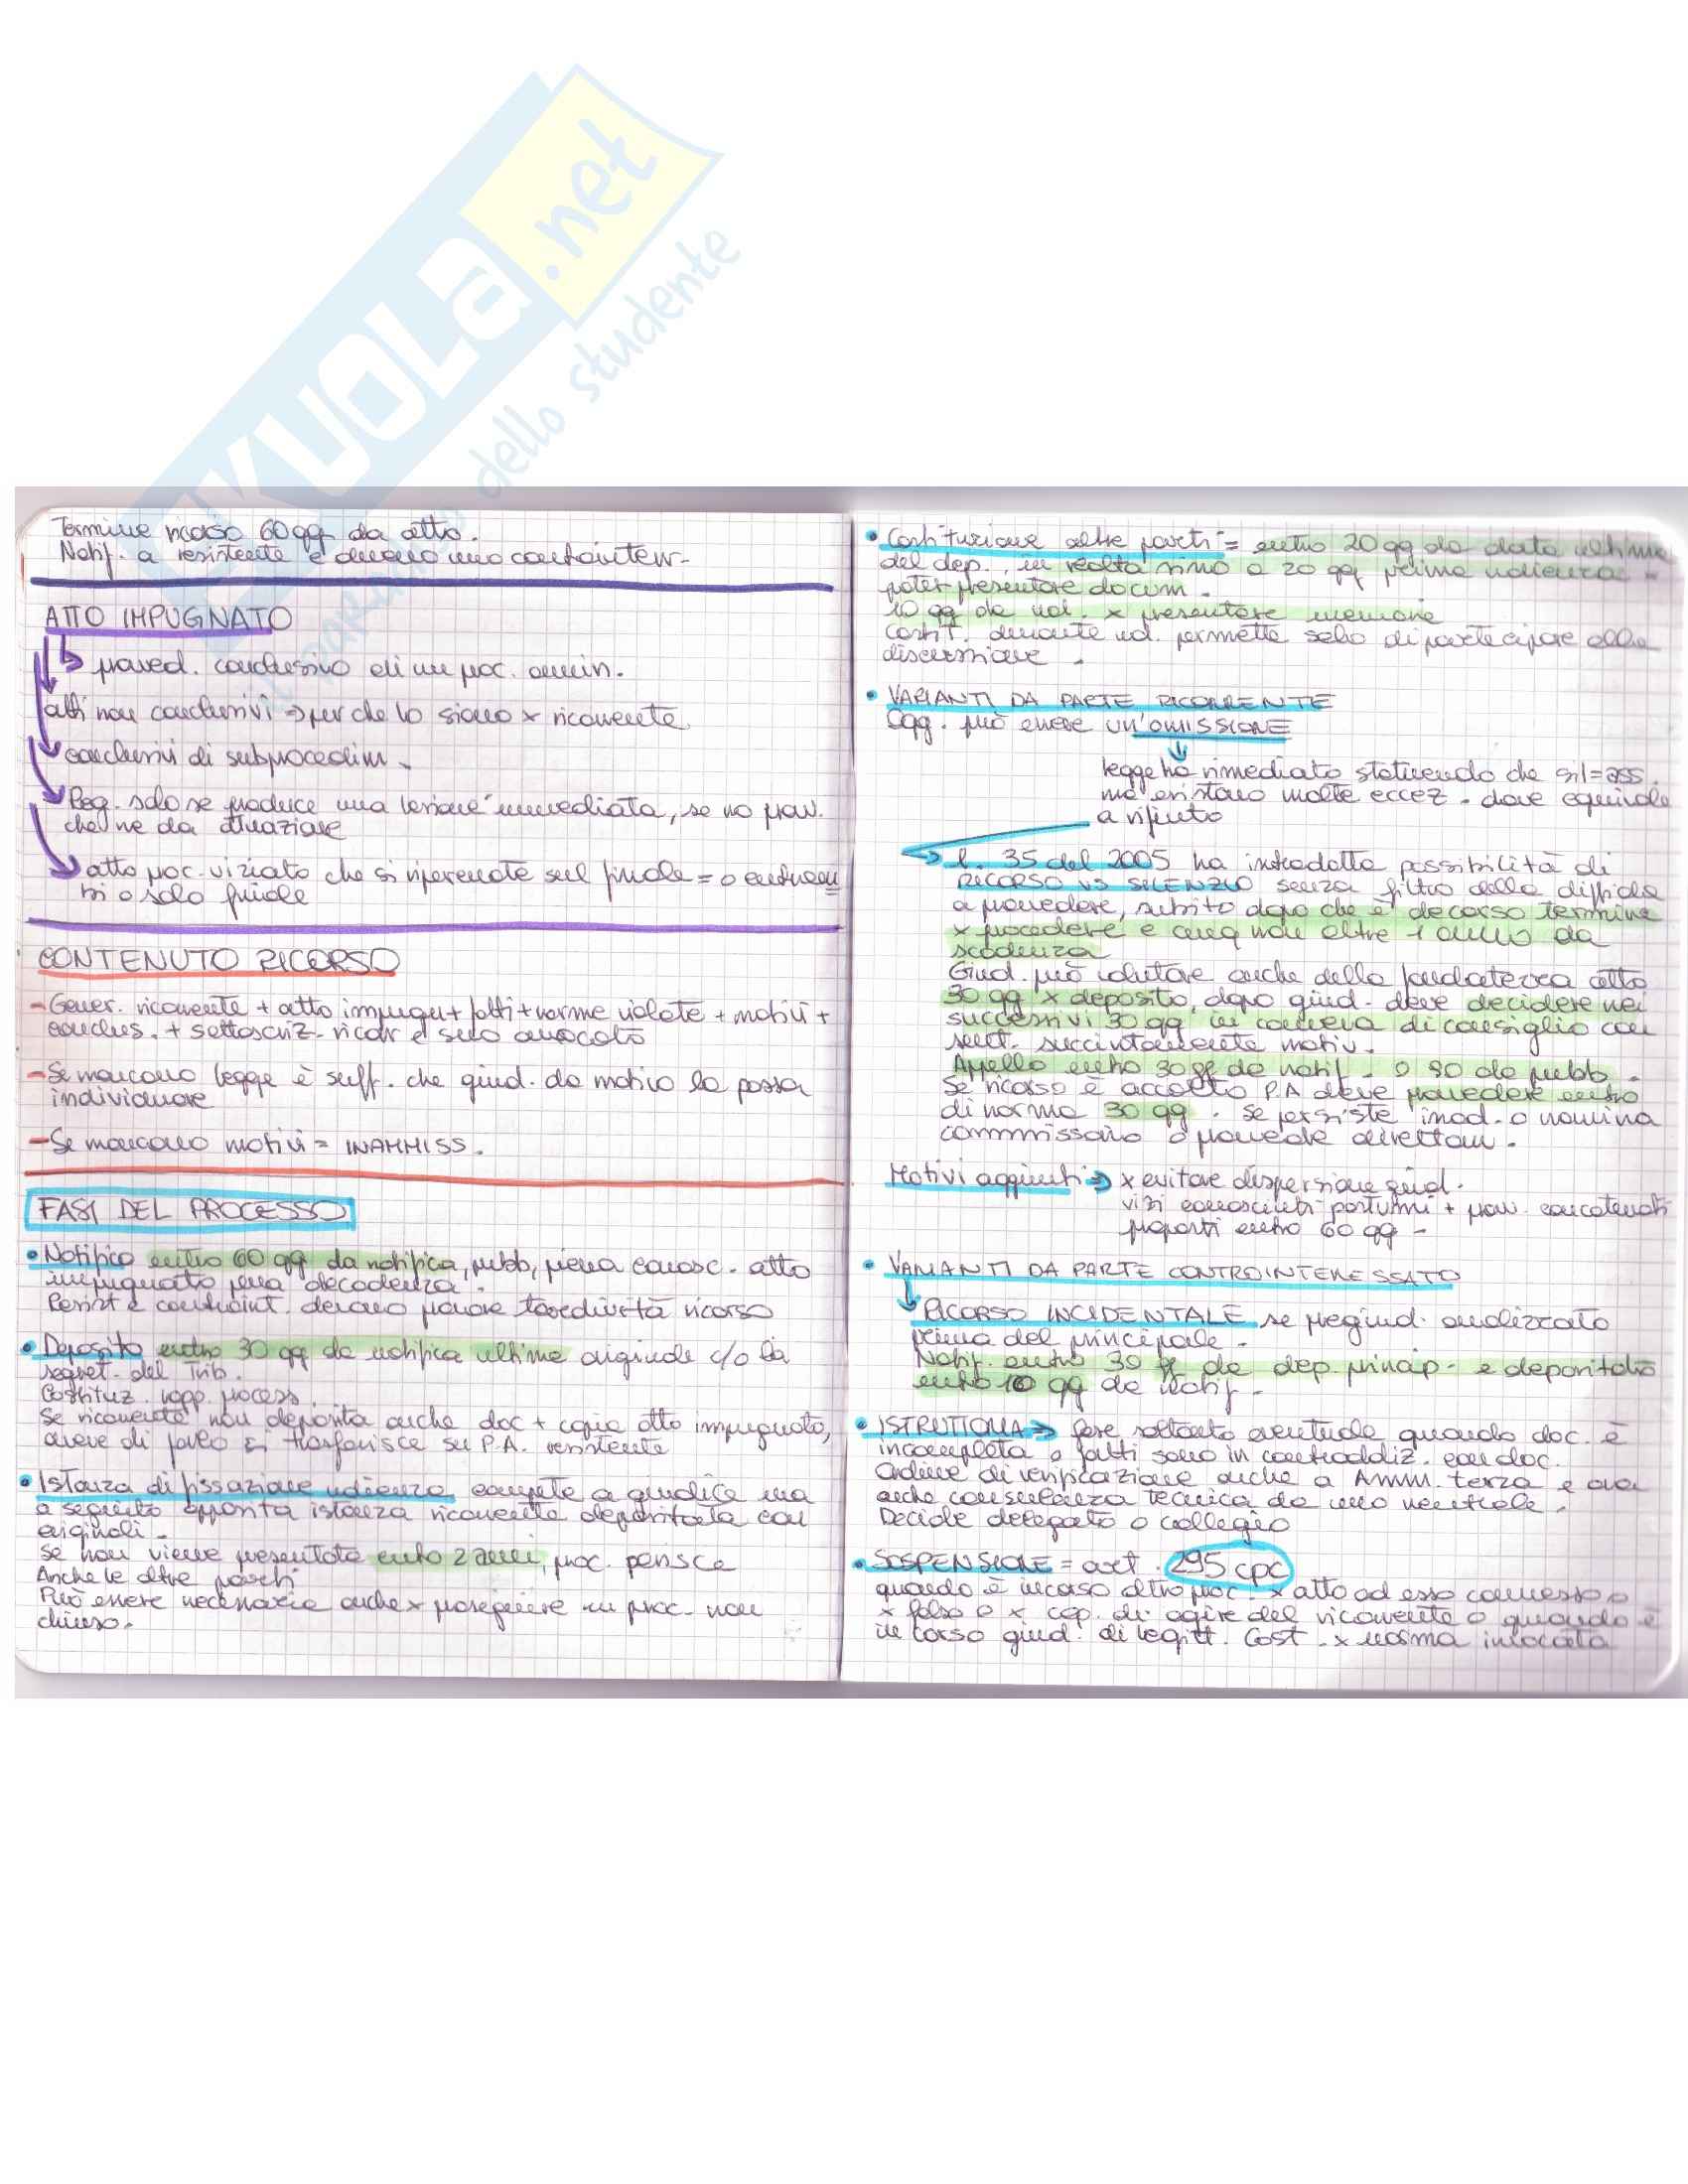 SKUOLa.net
dello studente
Termine ricorso 60 gg da atto.
Notif. a resistente e almeno uno controinter.
ATTO IMPUGNATO
provved. conclusivo di un proc. ammin.
atti non conclusivi → perché lo siano x ricorrente
conclusivi di subprocedim.
Reg. solo se produce una lesione immediata, se no provv.
che ne dà attuazione
atto proc. viziato che si ripercuote sul finale = o entram
bi o solo finale
CONTENUTO RICORSO
- Gener. ricorrente + atto impugn + fatti + norme violate + motivi +
conclus. + sottoscriz. ricorr e suo avvocato
- Se mancano legge è suff. che giud. da motivo la possa
individuare
- Se mancano motivi = INAMMISS.
FASI DEL PROCESSO
• Notifica entro 60 gg da notifica, pubb, piena conosc. atto
impugnato pena decadenza.
Resist e controint. devono provare tardività ricorso
• Deposito entro 30 gg da notifica ultima originale c/o la
segret. del Trib.
Costituz. rapp. process.
Se ricorrente non deposita anche doc + copia atto impugnato,
onere di farlo si trasferisce su P.A. resistente
• Istanza di fissazione udienza compete a giudice ma
a seguito apposita istanza ricorrente depositata con
originali.
Se non viene presentata entro 2 anni, proc. perisce
Anche le altre parti
Può essere necessaria anche x proseguire un proc. non
chiuso.
• Costituzione altre parti = entro 20 gg da data ultima
del dep., in realtà sino a 20 gg prima udienza
poter presentare docum.
10 gg da ud. x presentare memorie
Costit. durante ud. permette solo di partecipare alla
discussione.
• VARIANTI DA PARTE RICORRENTE
Ogg. può essere UN'OMISSIONE
legge ha rimediato statuendo che sil = ass.
ma esistono molte eccez. dove equivale
a rifiuto
l. 35 del 2005 ha introdotto possibilità di
RICORSO VS SILENZIO senza filtro della diffida
a provvedere, subito dopo che è decorso termine
x procedere e cmq non oltre 1 anno da
scadenza
Giud. può valutare anche della fondatezza atto
30 gg x deposito, dopo giud. deve decidere nei
successivi 30 gg in camera di consiglio con
sent. succintamente motiv.
Appello entro 30 gg da notif. o 90 da pubb.
Se ricorso è accolto P.A deve provvedere entro
di norma 30 gg. Se persiste inad. o nomina
commissario o provvede direttam.
Motivi aggiunti → x evitare dispersione giud.
vizi conosciuti postumi + provv. concatenati
proposti entro 60 gg -
• VARIANTI DA PARTE CONTROINTERESSATO
RICORSO INCIDENTALE se pregiud. analizzato
prima del principale.
Notif. entro 30 gg da dep. princip. e depositato
entro 10 gg da notif.
• ISTRUTTORIA → fase soltanto eventuale quando doc. è
incompleta o fatti sono in contraddiz. con doc.
Ordine di verificazione anche a Amm. terza e ora
anche consulenza tecnica da uno neutrale.
Decide delegato o collegio
• SOSPENSIONE = art. 295 cpc
quando è in corso altro proc. x atto ad esso connesso o
x falso o x cap. di agire del ricorrente o quando è
in corso giud. di legitt. Cost. x norma invocata